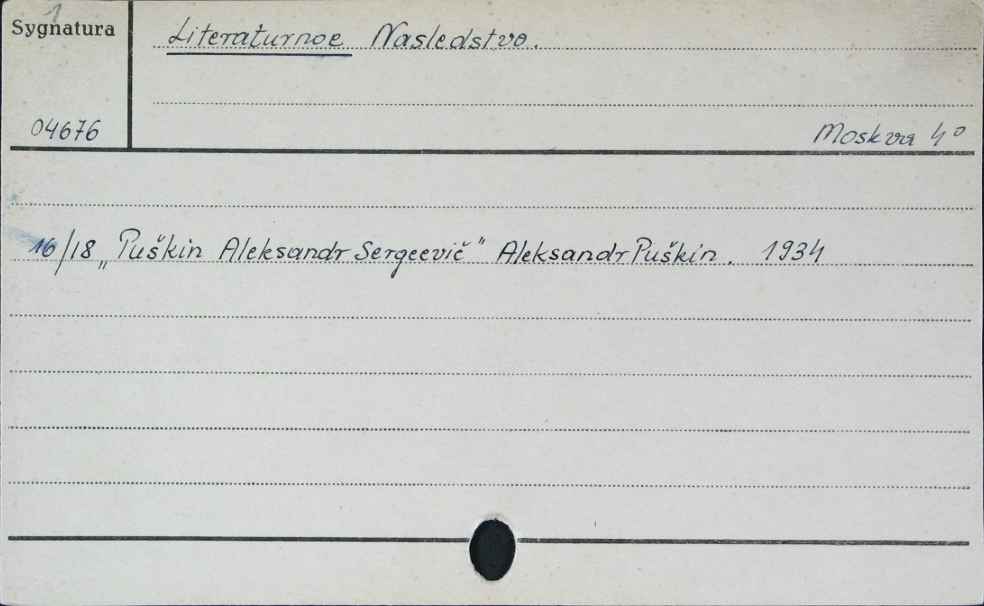 1
Sygnatura
Literaturnoe Nasledstvo.
04676
Moskva 4°
16/18 „Puškin Aleksandr Sergeevič" Aleksandr Puškin. 1934